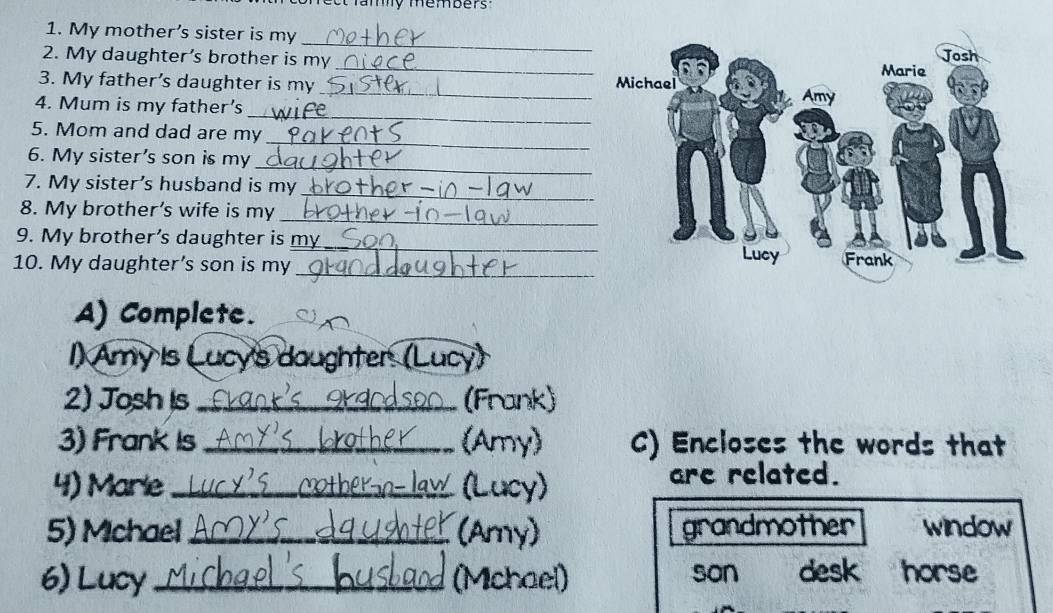 correct family members:
1. My mother's sister is my mother
2. My daughter's brother is my niece
3. My father's daughter is my sister
4. Mum is my father's wife
5. Mom and dad are my parents
6. My sister's son is my daughter
7. My sister's husband is my brother-in-law
8. My brother's wife is my brother-in-law
9. My brother's daughter is my son
10. My daughter's son is my granddaughter
Michael
Amy
Marie
Josh
Lucy
Frank
A) Complete.
1) Amy is Lucy's daughter. (Lucy)
2) Josh is frank's grandson (Frank)
3) Frank is Amy's brother (Amy)
4) Marie Lucy's mother-in-law (Lucy)
5) Michael Amy's daughter (Amy)
6) Lucy Michael's husband (Michael)
C) Encloses the words that
are related.
grandmother window
son desk horse